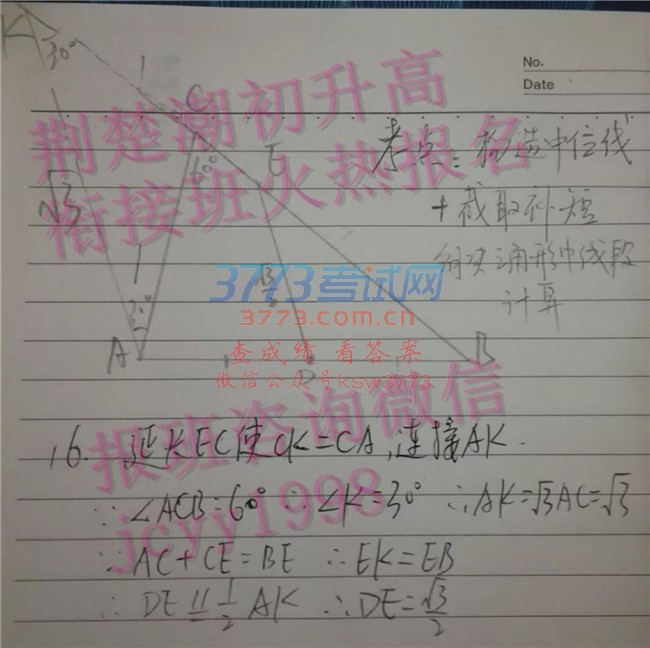 K
30°
1
C
No.
Date
荆楚潮初升高
衔接班火热报名
考点:构造中位线
60°
E
√3
+截取补短
1
√3/2
解决三角形中线段
计算
3773考试网
3773.com.cn
30°
A
D
B
查成绩 看答案
微信公众号ksw3773
报班咨询微信
jcyy1998
16. 延长EC使CK=CA,连接AK.
∵∠ACB=60° ∴∠K=30° ∴AK=√3AC=√3
∵AC+CE=BE ∴EK=EB
∴DE∥=1/2AK ∴DE=√3/2